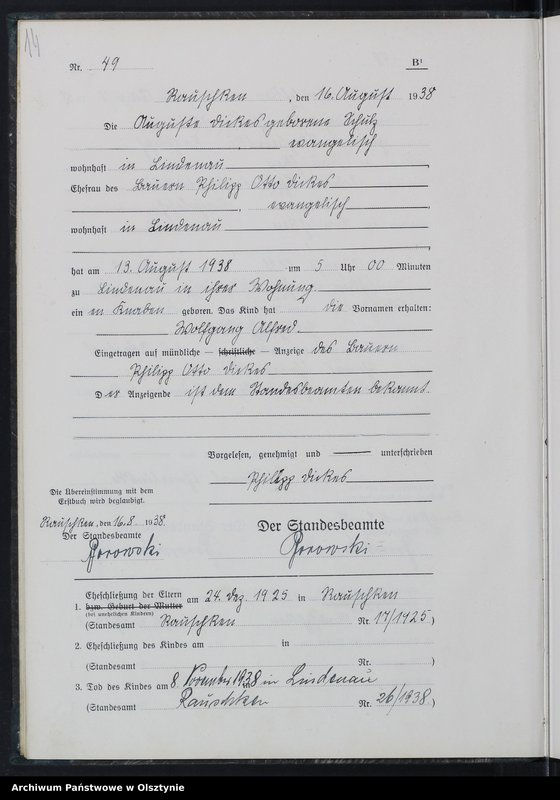 14
Nr. 49 B¹
Rauschken, den 16. August 1938
Die Auguste Dickes geborene Schulz
evangelisch
wohnhaft in Lindenau
Ehefrau des Bauern Philipp Otto Dickes
, evangelisch
wohnhaft in Lindenau
hat am 13. August 1938 um 5 Uhr 00 Minuten
zu Lindenau in ihrer Wohnung
ein en Knaben geboren. Das Kind hat die Vornamen erhalten:
Wolfgang Alfred.
Eingetragen auf mündliche — schriftliche — Anzeige des Bauern
Philipp Otto Dickes
Der Anzeigende ist dem Standesbeamten bekannt.
Vorgelesen, genehmigt und unterschrieben
Philipp Dickes
Die Übereinstimmung mit dem
Erstbuch wird beglaubigt.
Rauschken, den 16.8. 1938.
Der Standesbeamte
Der Standesbeamte
Borowski
Borowski
Eheschließung der Eltern
1. bzw. Geburt der Mutter am 24. Dez. 1925 in Rauschken
(bei unehelichen Kindern)
(Standesamt Rauschken Nr. 17/1925)
2. Eheschließung des Kindes am in
(Standesamt Nr. )
3. Tod des Kindes am 8. November 1938 in Lindenau
(Standesamt Rauschken Nr. 26/1938)
Archiwum Państwowe w Olsztynie